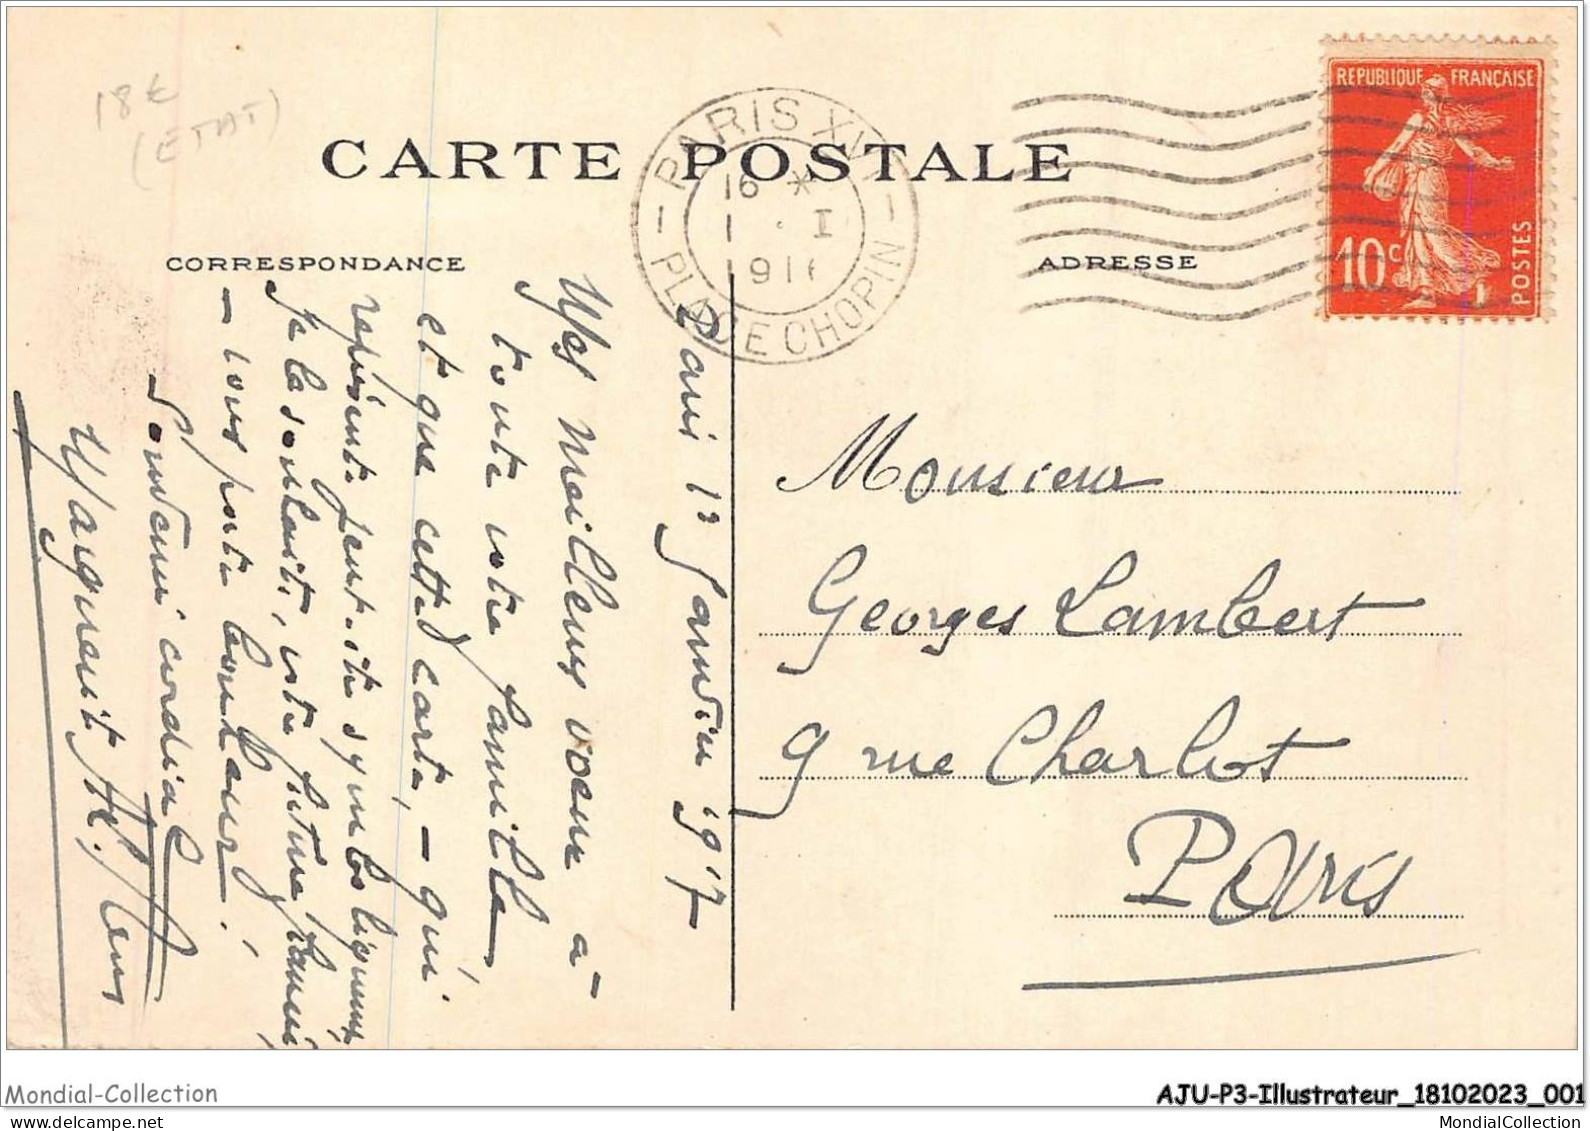 18 €
(ETAT)
CARTE POSTALE
PARIS XVI
PLACE CHOPIN
16 *
1 I
916
REPUBLIQUE FRANÇAISE
10 c
POSTES
CORRESPONDANCE
ADRESSE
Paris 1er Janvier 1917
Mes meilleurs voeux à
toute votre famille
et que cette carte, - qui
représente peut-être symboliquement
la votre future famille,
- vous porte bonheur!
Souvenir cordial
Monsieur
Georges Lambert
9 rue Charlot
Paris
Mondial-Collection
AJU-P3-Illustrateur_18102023_001
MondialCollection